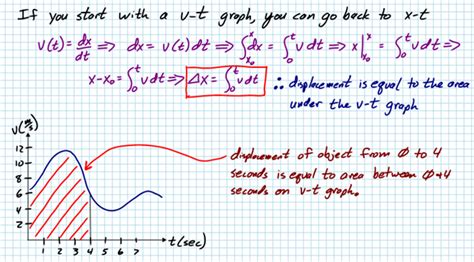 If you start with a v-t graph, you can go back to x-t
v(t) = dx/dt ⇒ dx = v(t)dt ⇒ ∫_{x₀}^{x} dx = ∫₀ᵗ v dt ⇒ x|_{x₀}^{x} = ∫₀ᵗ v dt ⇒
x-x₀ = ∫₀ᵗ v dt ⇒ Δx = ∫₀ᵗ v dt ∴ displacement is equal to the area
under the v-t graph
v(m/s)
12
10
8
6
4
2
1 2 3 4 5 6 7
t(sec)
displacement of object from 0 to 4
seconds is equal to area between 0→4
seconds on v-t graph.